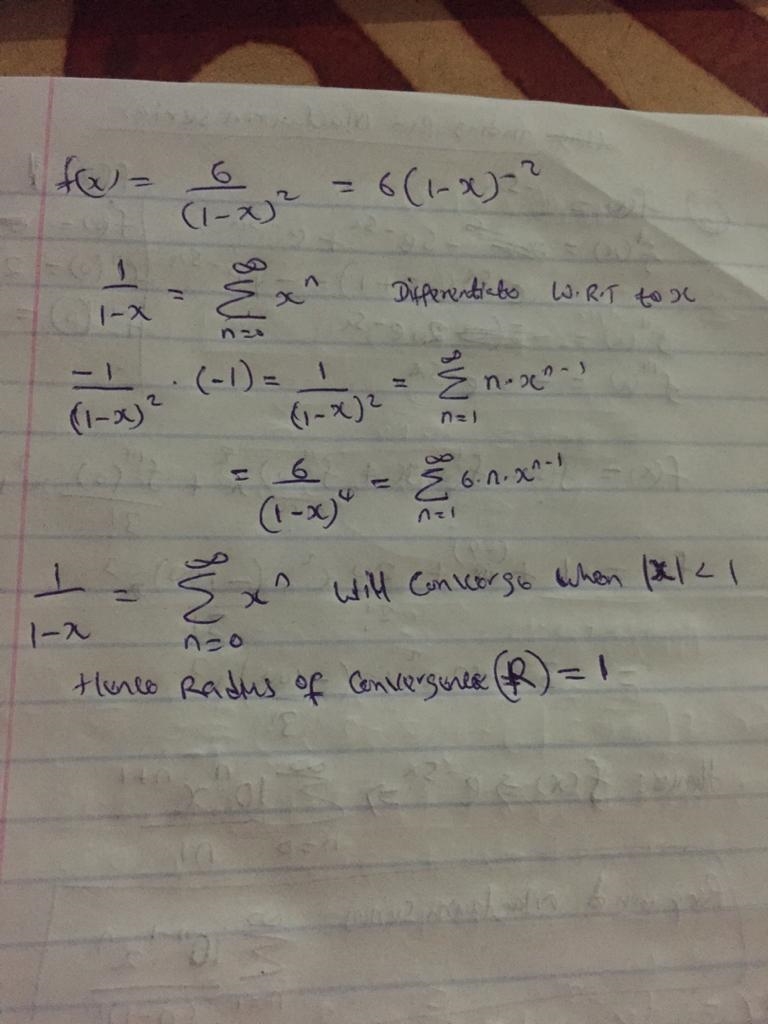 f(x) = 6/(1-x)² = 6(1-x)⁻²
1/(1-x) = ∑_{n=0}^{∞} xⁿ Differentiate W.R.T to x
-1/(1-x)² · (-1) = 1/(1-x)² = ∑_{n=1}^{∞} n·xⁿ⁻¹
= 6/(1-x)⁴ = ∑_{n=1}^{∞} 6·n·xⁿ⁻¹
1/(1-x) = ∑_{n=0}^{∞} xⁿ will converge when |x| < 1
Hence Radius of Convergence (R) = 1